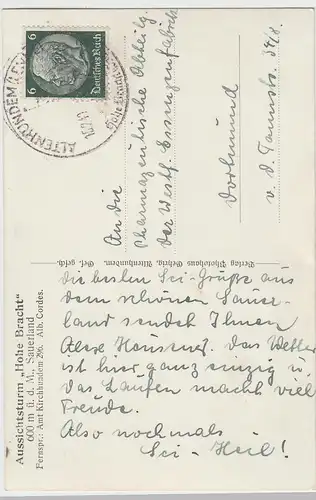 6
Deutsches Reich
ALTENHUNDEM
Hohe Bracht
An die
Pharmazeutische Abteilg.
der Westf. Essigenfabrik
Dortmund
v. d. Tannstr. 34/8.
Verlag Photohaus Gehrig, Altenhundem. Ges. gesch.
Aussichtsturm „Hohe Bracht"
600 m ü. d. M., Sauerland
Fernspr.: Amt Kirchhundem 296. Alb. Cordes.
die besten Sci-Grüße aus
dem schönen Sauer-
land sendet Ihnen
Das Wetter
ist hier ganz einzig u.
das Laufen macht viel
Freude.
Also nochmals
Sci-Heil!